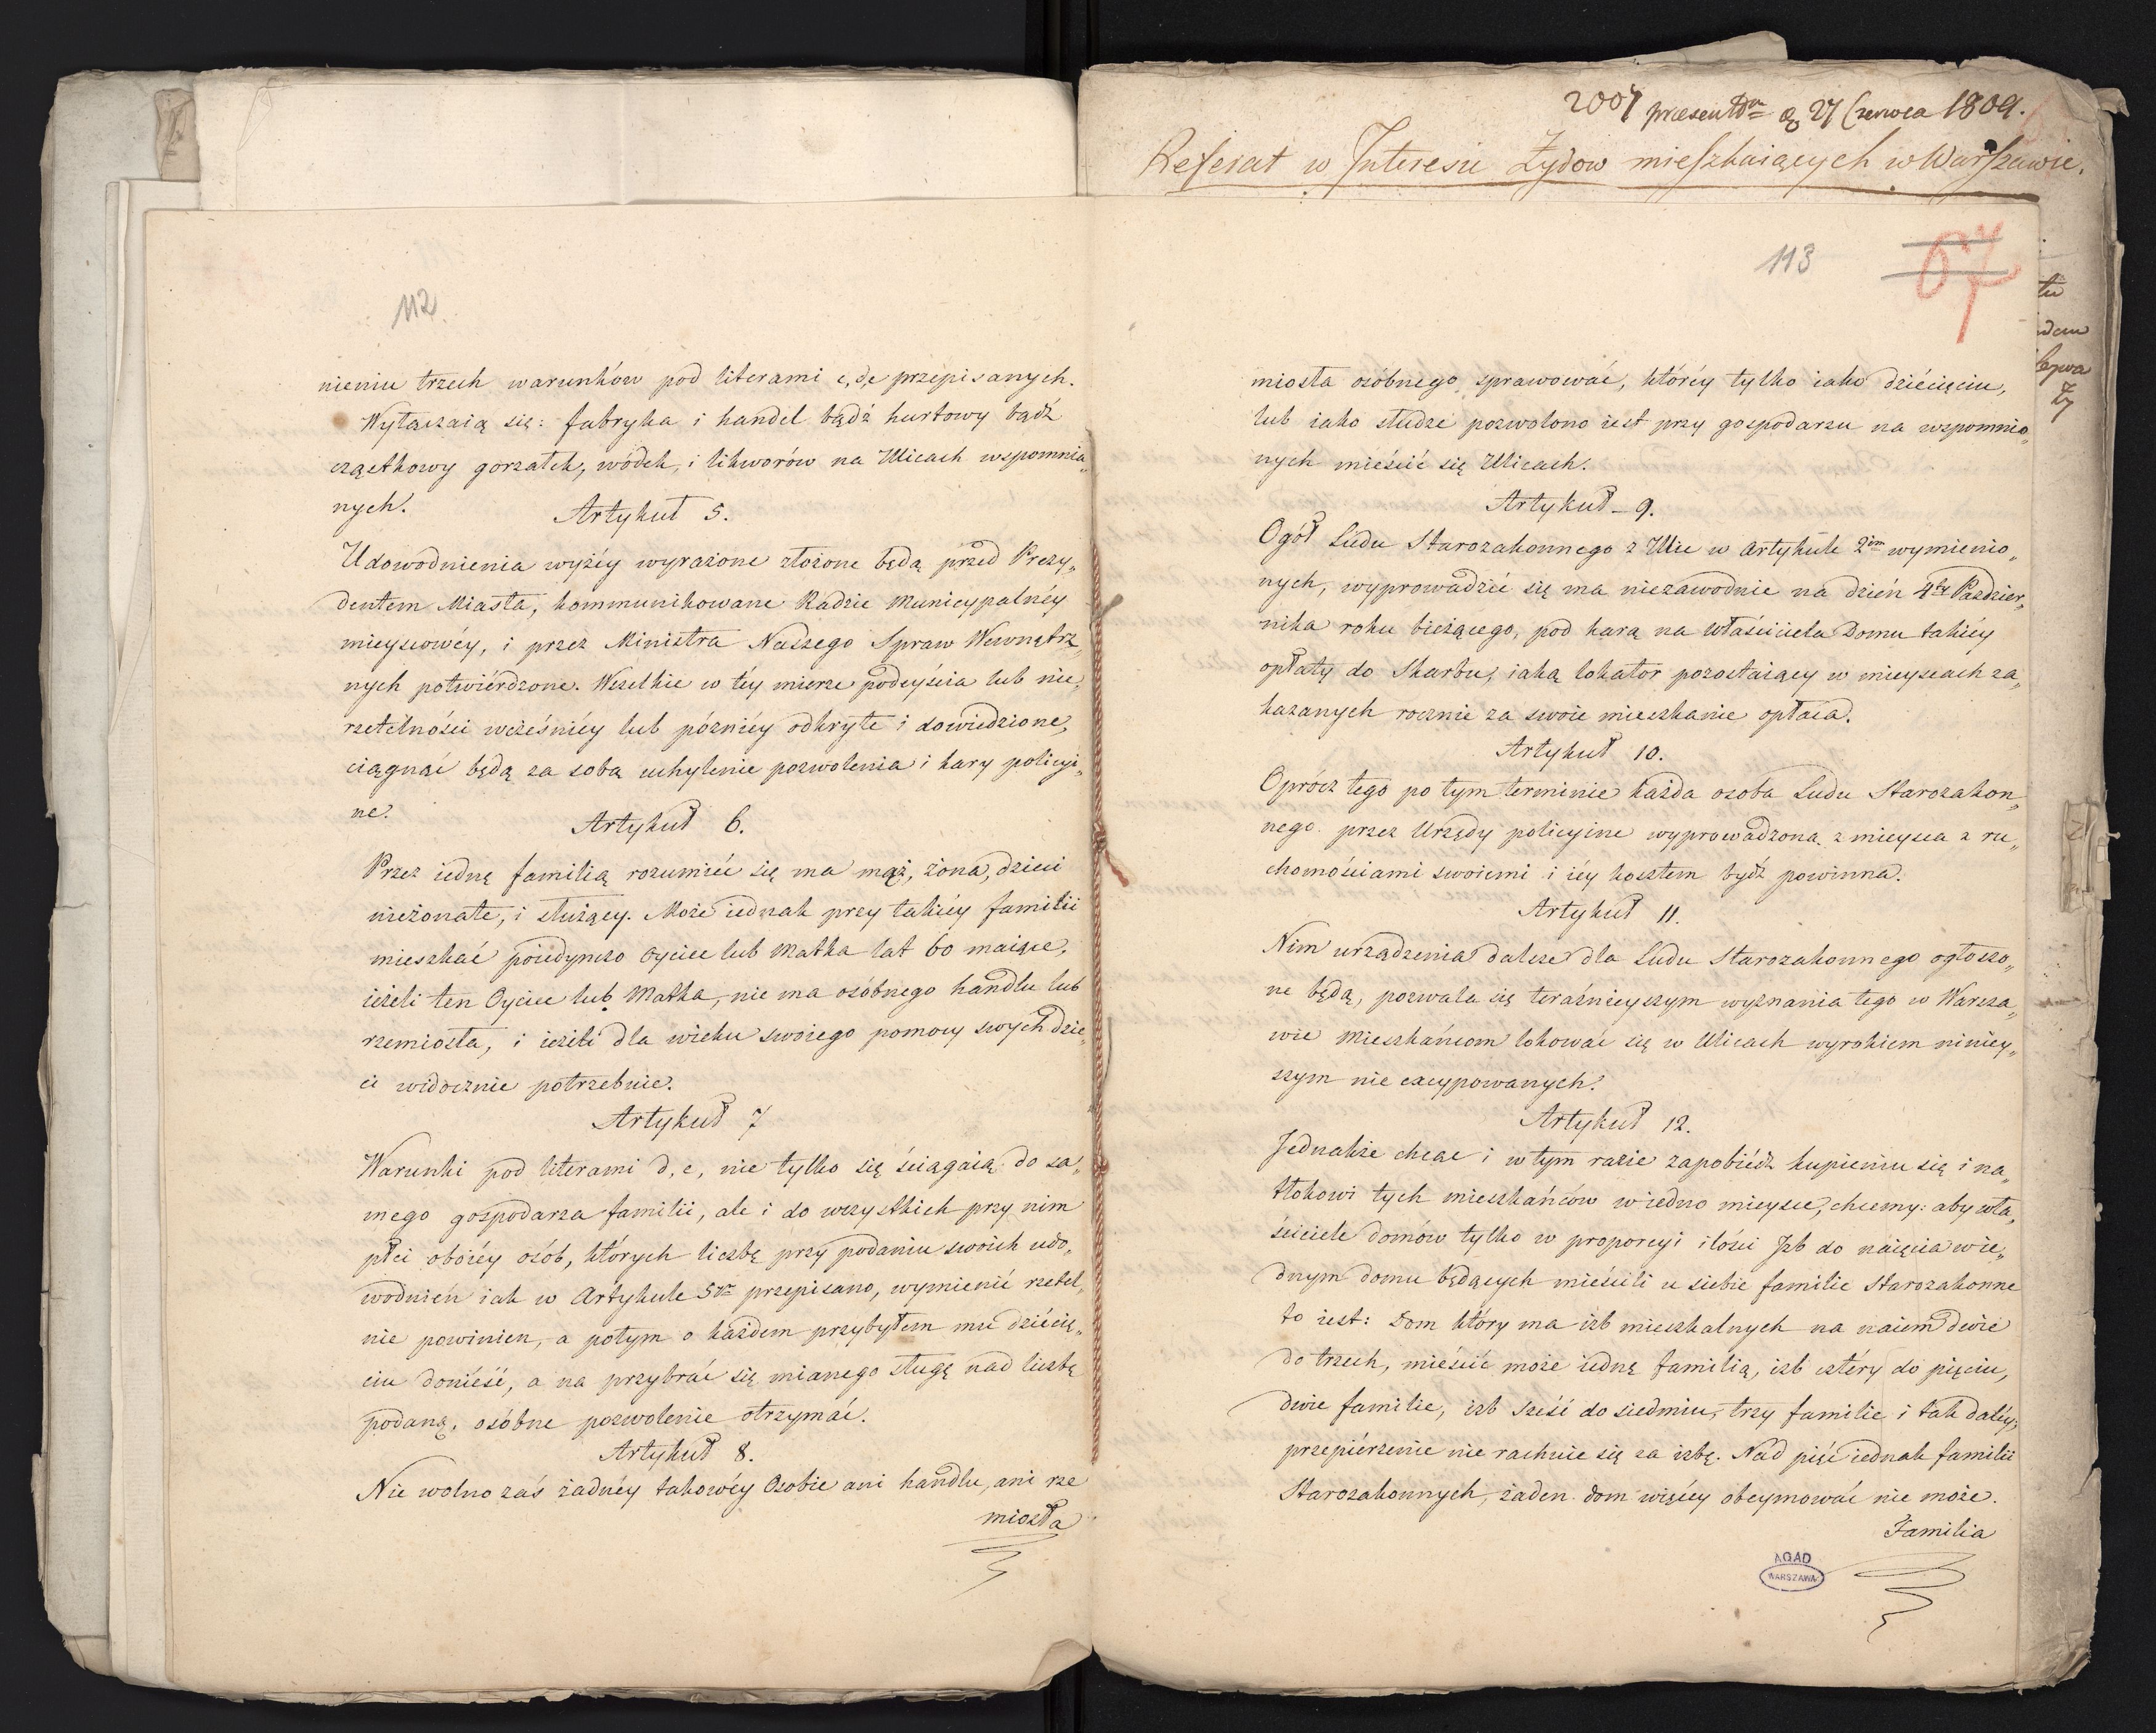 112
nieniu trzech warunków pod literami c, d, e przepisanych.
Wyłączaią się: fabryka i handel bądź hurtowy bądź
cząstkowy gorzałek, wódek, i likworów na Ulicach wspomnia„
nych.
Artykuł 5.
Udowodnienia wyżéy wyrażone złożone będą przed Prezy„
dentem Miasta, kommunikowane Radzie Municypalnéy
mieyscowéy, i przez Ministra Naszego Spraw Wewnętrz„
nych potwiérdzone. Wszelkie w téy mierze podeyścia lub nie„
rzetelności wcześniéy lub późniéy odkryte i dowiedzione,
ciągnąć będą za sobą uchylenie pozwolenia i kary policyi„
ne.
Artykuł 6.
Przez iedną familią rozumiéć się ma mąż, żona, dzieci
nieżonate, i służący. Może iednak przy takiéy familii
mieszkać poiedynczo Oyciec lub Matka lat 60 maiące,
ieżeli ten Oyciec lub Matka, nie ma osóbnego handlu lub
rzemiosła, i ieżeli dla wieku swoiego pomocy swych dzie„
ci widocznie potrzebuie.
Artykuł 7
Warunki pod literami d, e, nie tylko się ściągaią do sa„
mego gospodarza familii, ale i do wszystkich przy nim
płci oboiéy osób, których liczbę przy podaniu swoich udo„
wodnień iak w Artykule 5m przepisano, wymienić rzetel„
nie powinien, a potym o każdem przybyłem mu dziécię„
ciu doniéść, a na przybrać się mianego sługę nad liczbę
podaną, osóbne pozwolenie otrzymać.
Artykuł 8.
Nie wolno zaś żadnéy takowéy Osobie ani handlu, ani rze
miosła
2007 praesentdm d 27 Czerwca 1809.
Referat w Interesie Żydow mieszkaiących w Warszawie.
113
67
miosła osóbnego sprawować, któréy tylko iako dziécięciu,
lub iako słudze pozwolono iest przy gospodarzu na wspomnio„
nych mieścić się Ulicach.
Artykuł 9.
Ogół Ludu Starozakonnego z Ulic w Artykule 2im wymienio„
nych, wyprowadzić się ma niezawodnie na dzień 4ty Paździer„
nika roku bieżącego, pod karą na właściciela Domu takiéy
opłaty do Skarbu, iaką lokator pozostaiący w mieyscach za„
kazanych rocznie za swoie mieszkanie opłaca.
Artykuł 10.
Oprócz tego po tym terminie każda osoba Ludu Starozakon„
nego przez Urzędy policyine wyprowadzona z mieysca z ru„
chomościami swoiemi i iéy kosztem bydź powinna.
Artykuł 11.
Nim urządzenia dalsze dla Ludu Starozakonnego ogłoszo„
ne będą, pozwala się teraźnieyszym wyznania tego w Warsza„
wie Mieszkańcom lokować się w Ulicach wyrokiem niniey„
szym nie excypowanych.
Artykuł 12.
Jednakże chcąc i w tym razie zapobiédz kupieniu się i na„
tłokowi tych mieszkańców w iedno mieysce, chcemy: aby wła„
ściciele domów tylko w proporcyi ilości Jzb do naięcia w ie„
dnym domu będących mieścili u siebie familie Starozakonne
to iest: Dom który ma izb mieszkalnych na naiem dwie
do trzech, mieścić może iedną familią, izb cztéry do pięciu,
dwie familie, izb sześć do siedmiu, trzy familie i tak daléy;
przepiérzenie nie rachuie się za izbę. Nad pięć iednak familii
Starozakonnych, żaden dom więcéy obeymować nie może.
Familia
AGAD
WARSZAWA